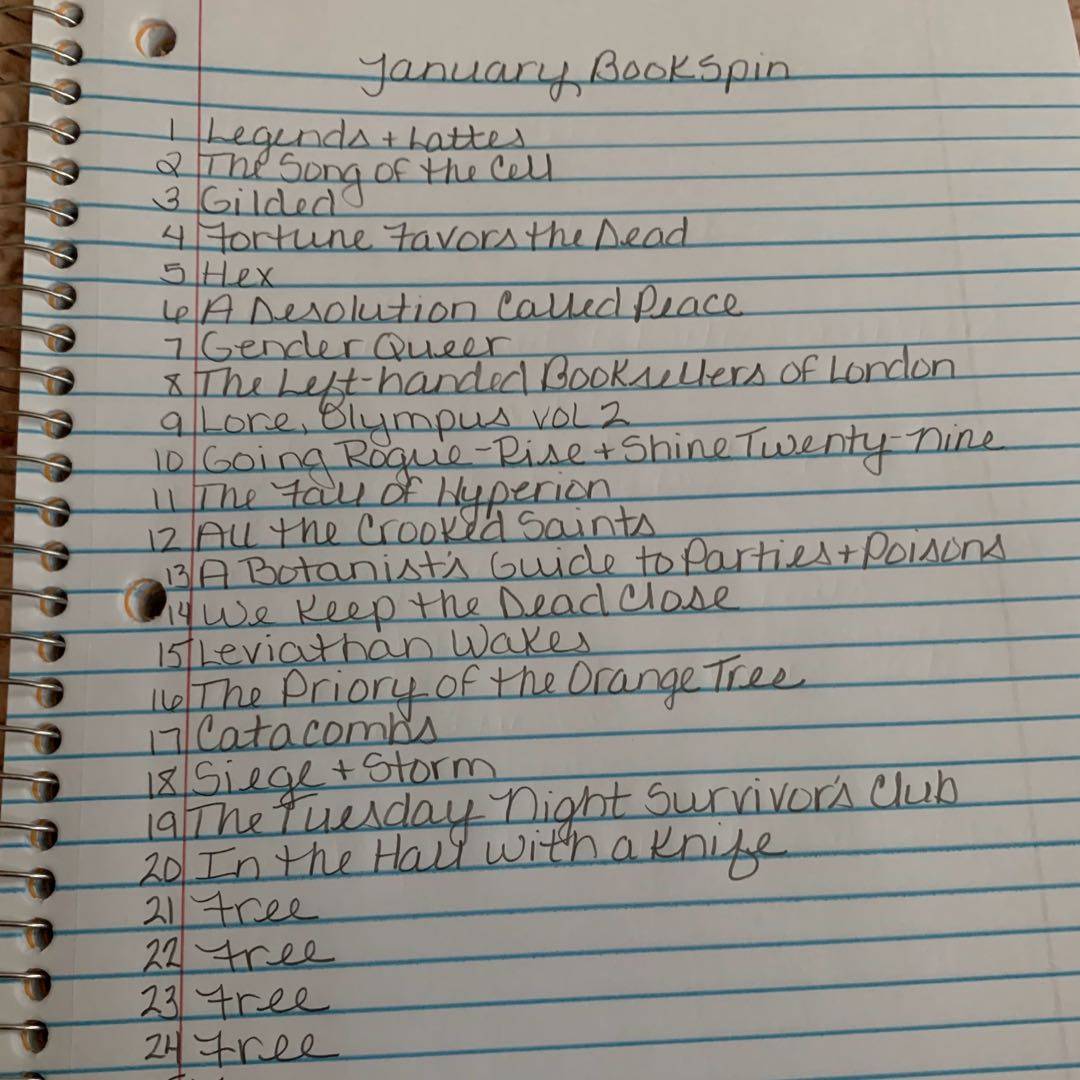 January BookSpin
1 Legends + Lattes
2 The Song of the Cell
3 Gilded
4 Fortune Favors the Dead
5 Hex
6 A Desolution Called Peace
7 Gender Queer
8 The Left-handed Booksellers of London
9 Lore, Olympus vol 2
10 Going Rogue - Rise + Shine Twenty-nine
11 The Fall of Hyperion
12 All the Crooked Saints
13 A Botanist's Guide to Parties + Poisons
14 We Keep the Dead Close
15 Leviathan Wakes
16 The Priory of the Orange Tree
17 Catacombs
18 Siege + Storm
19 The Tuesday Night Survivor's Club
20 In the Hall with a Knife
21 Free
22 Free
23 Free
24 Free